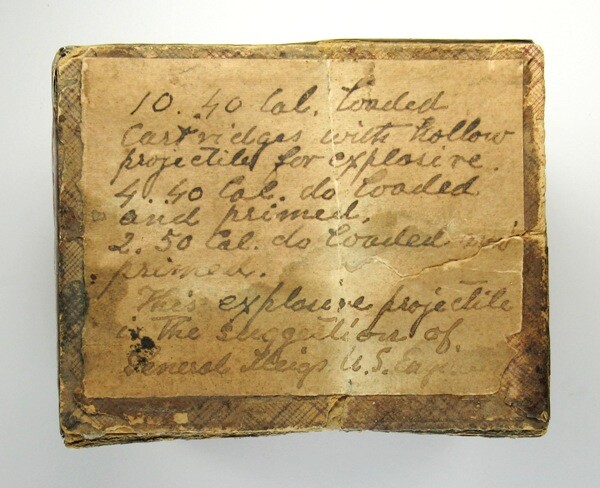 10. .40 Cal. loaded
Cartridges with hollow
projectile for explosive.
4. .40 Cal. do loaded
and primed.
2. 50 Cal. do loaded and
primed.
This explosive projectile
is the suggestion of
General Meigs U.S.